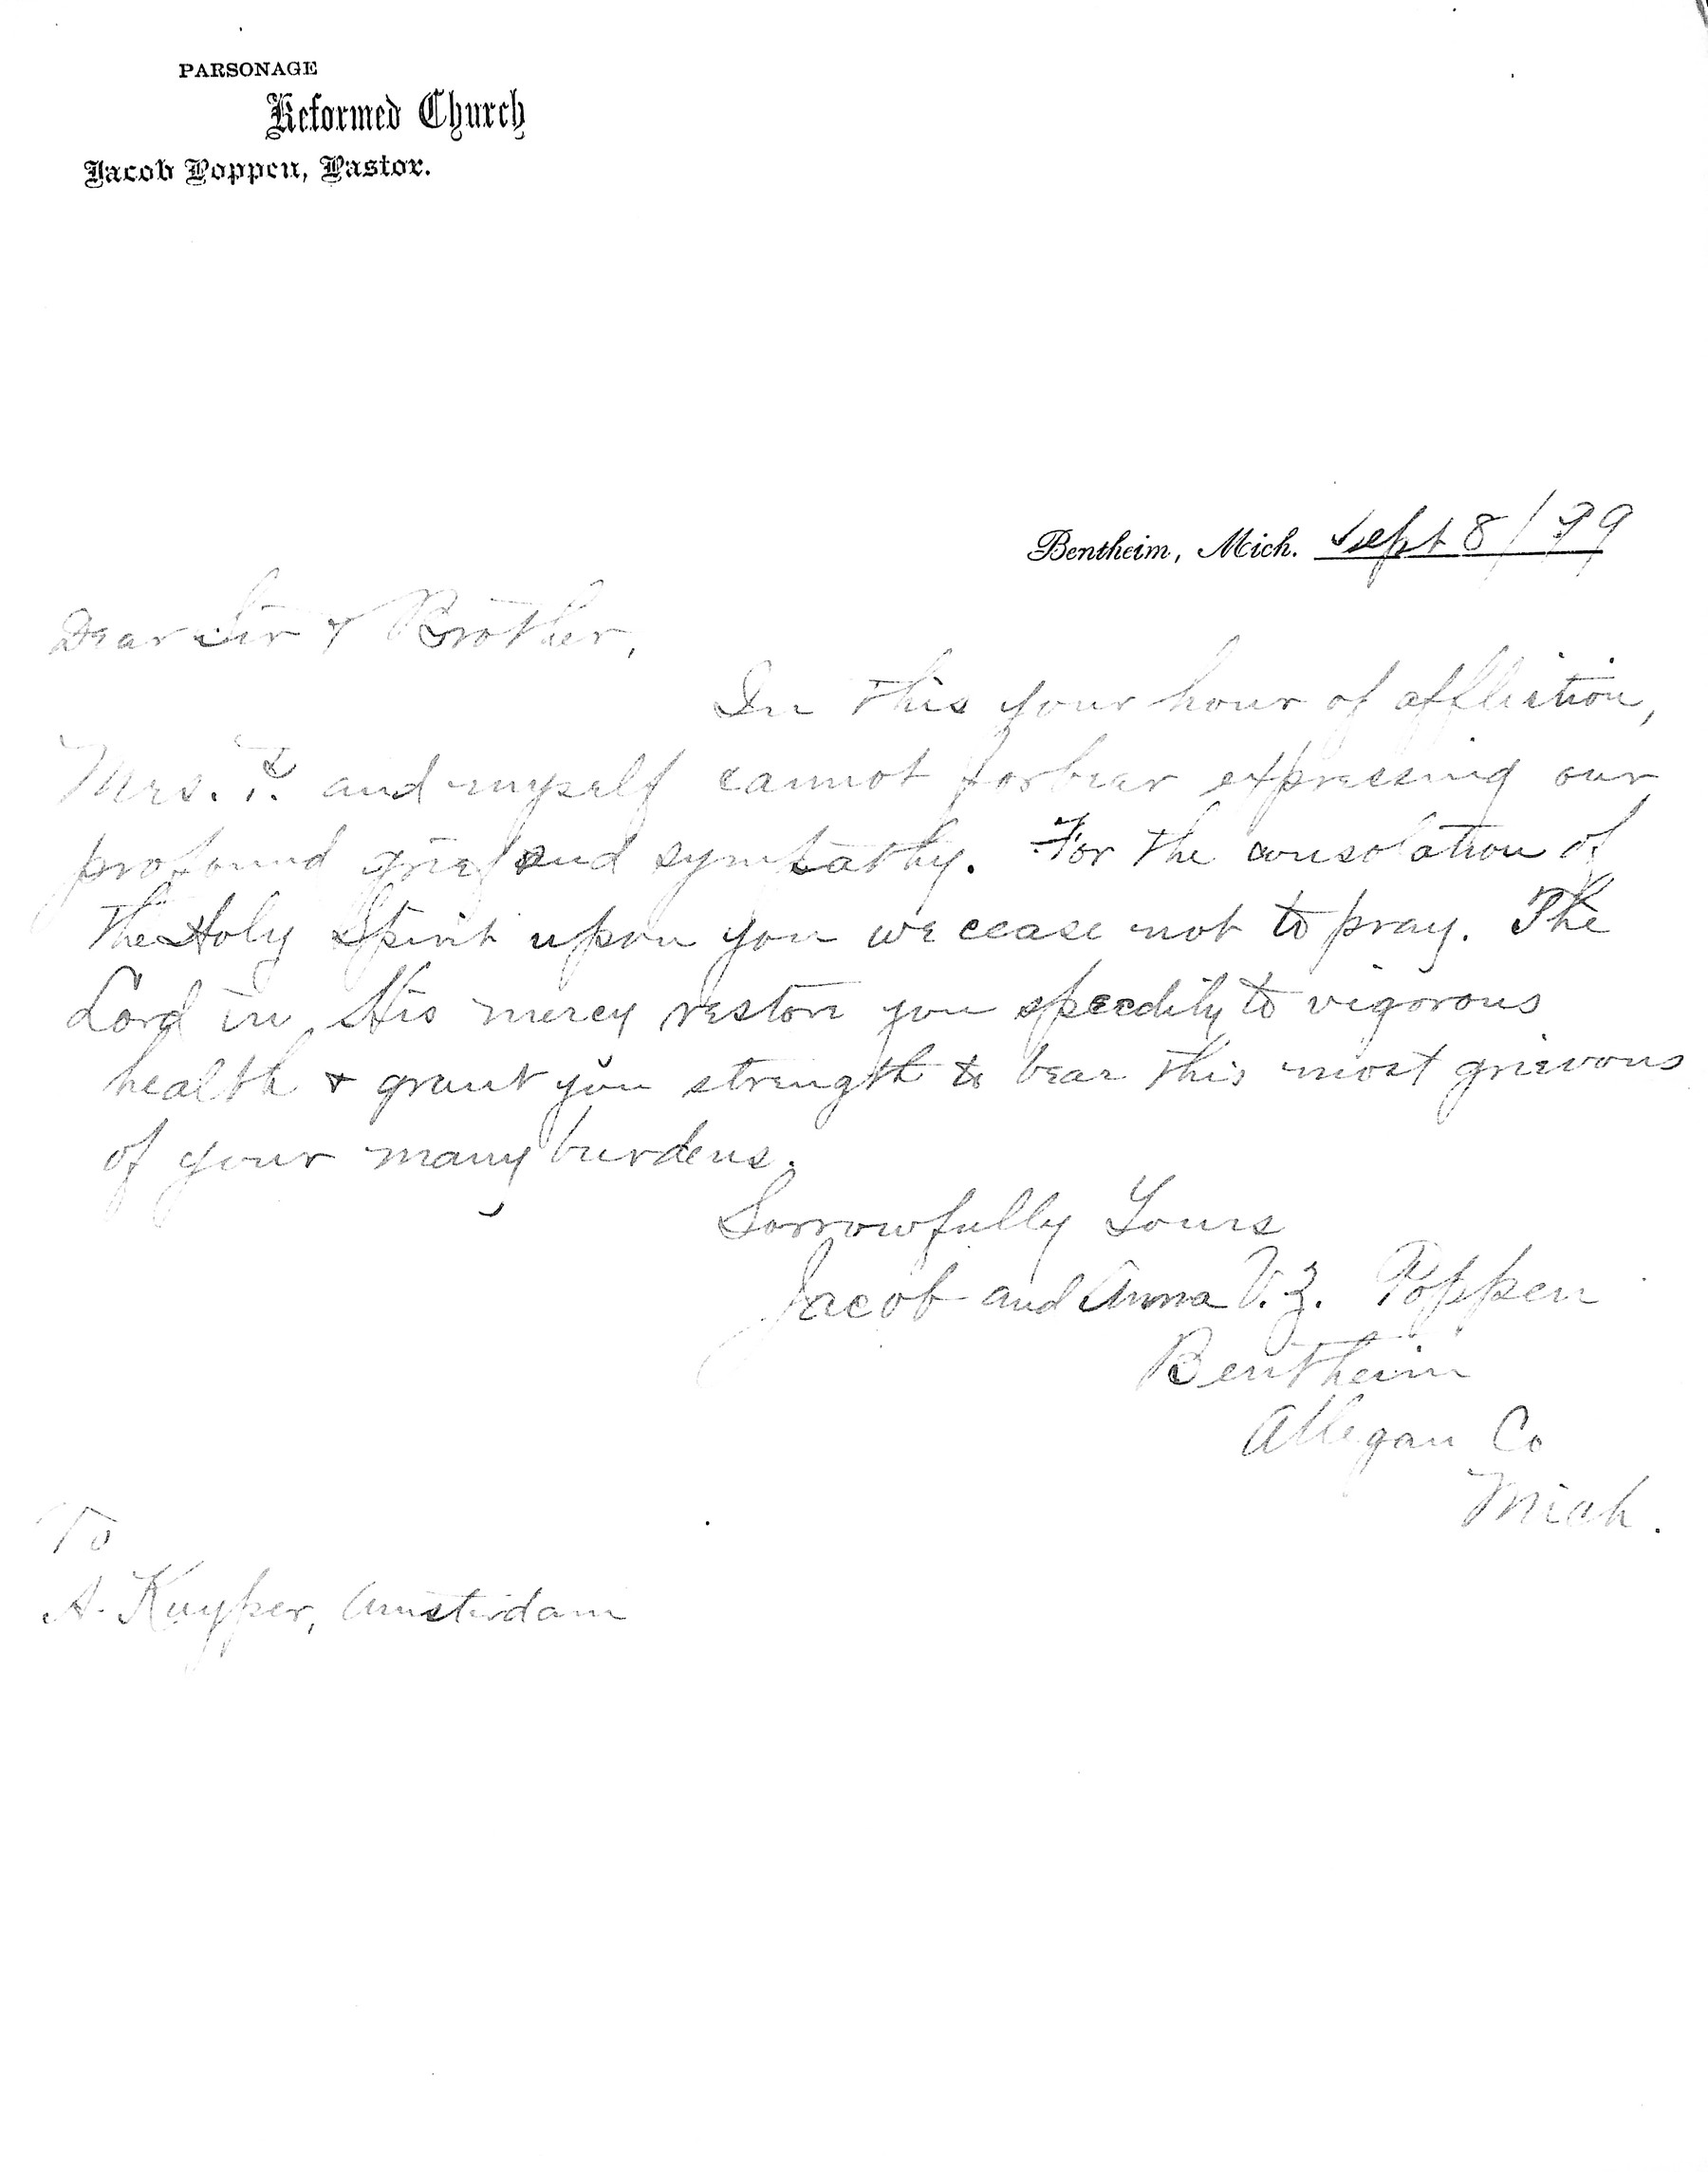 PARSONAGE
Reformed Church
Jacob Poppen, Pastor.
Bentheim, Mich. Sept 8/99
Dear Sir & Brother,
In this your hour of affliction,
Mrs. P. and myself cannot forbear expressing our
profound grief and sympathy. For the consolation of
the Holy Spirit upon you we cease not to pray. The
Lord in His mercy restore you speedily to vigorous
health & grant you strength to bear this most grievous
of your many burdens.
Sorrowfully Yours
Jacob and Anna V. Z. Poppen
Bentheim
Allegan Co
Mich.
To
A. Kuyper, Amsterdam